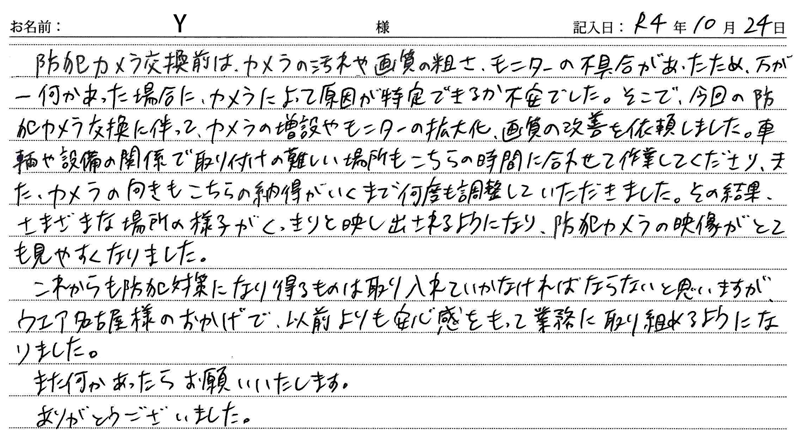 お名前： Y 様 記入日：R4年10月24日
防犯カメラ交換前は、カメラの汚れや画質の粗さ、モニターの不具合があったため、万が
一何かあった場合に、カメラによって原因が特定できるか不安でした。そこで、今回の防
犯カメラ交換に伴って、カメラの増設やモニターの拡大化、画質の改善を依頼しました。車
輌や設備の関係で取り付けの難しい場所もこちらの時間に合わせて作業してくださり、ま
た、カメラの向きもこちらの納得がいくまで何度も調整していただきました。その結果、
さまざまな場所の様子がくっきりと映し出されるようになり、防犯カメラの映像がとて
も見やすくなりました。
これからも防犯対策になり得るものは取り入れていかなければならないと思いますが、
ウエア名古屋様のおかげで、以前よりも安心感をもって業務に取り組めるようにな
りました。
また何かあったらお願いいたします。
ありがとうございました。